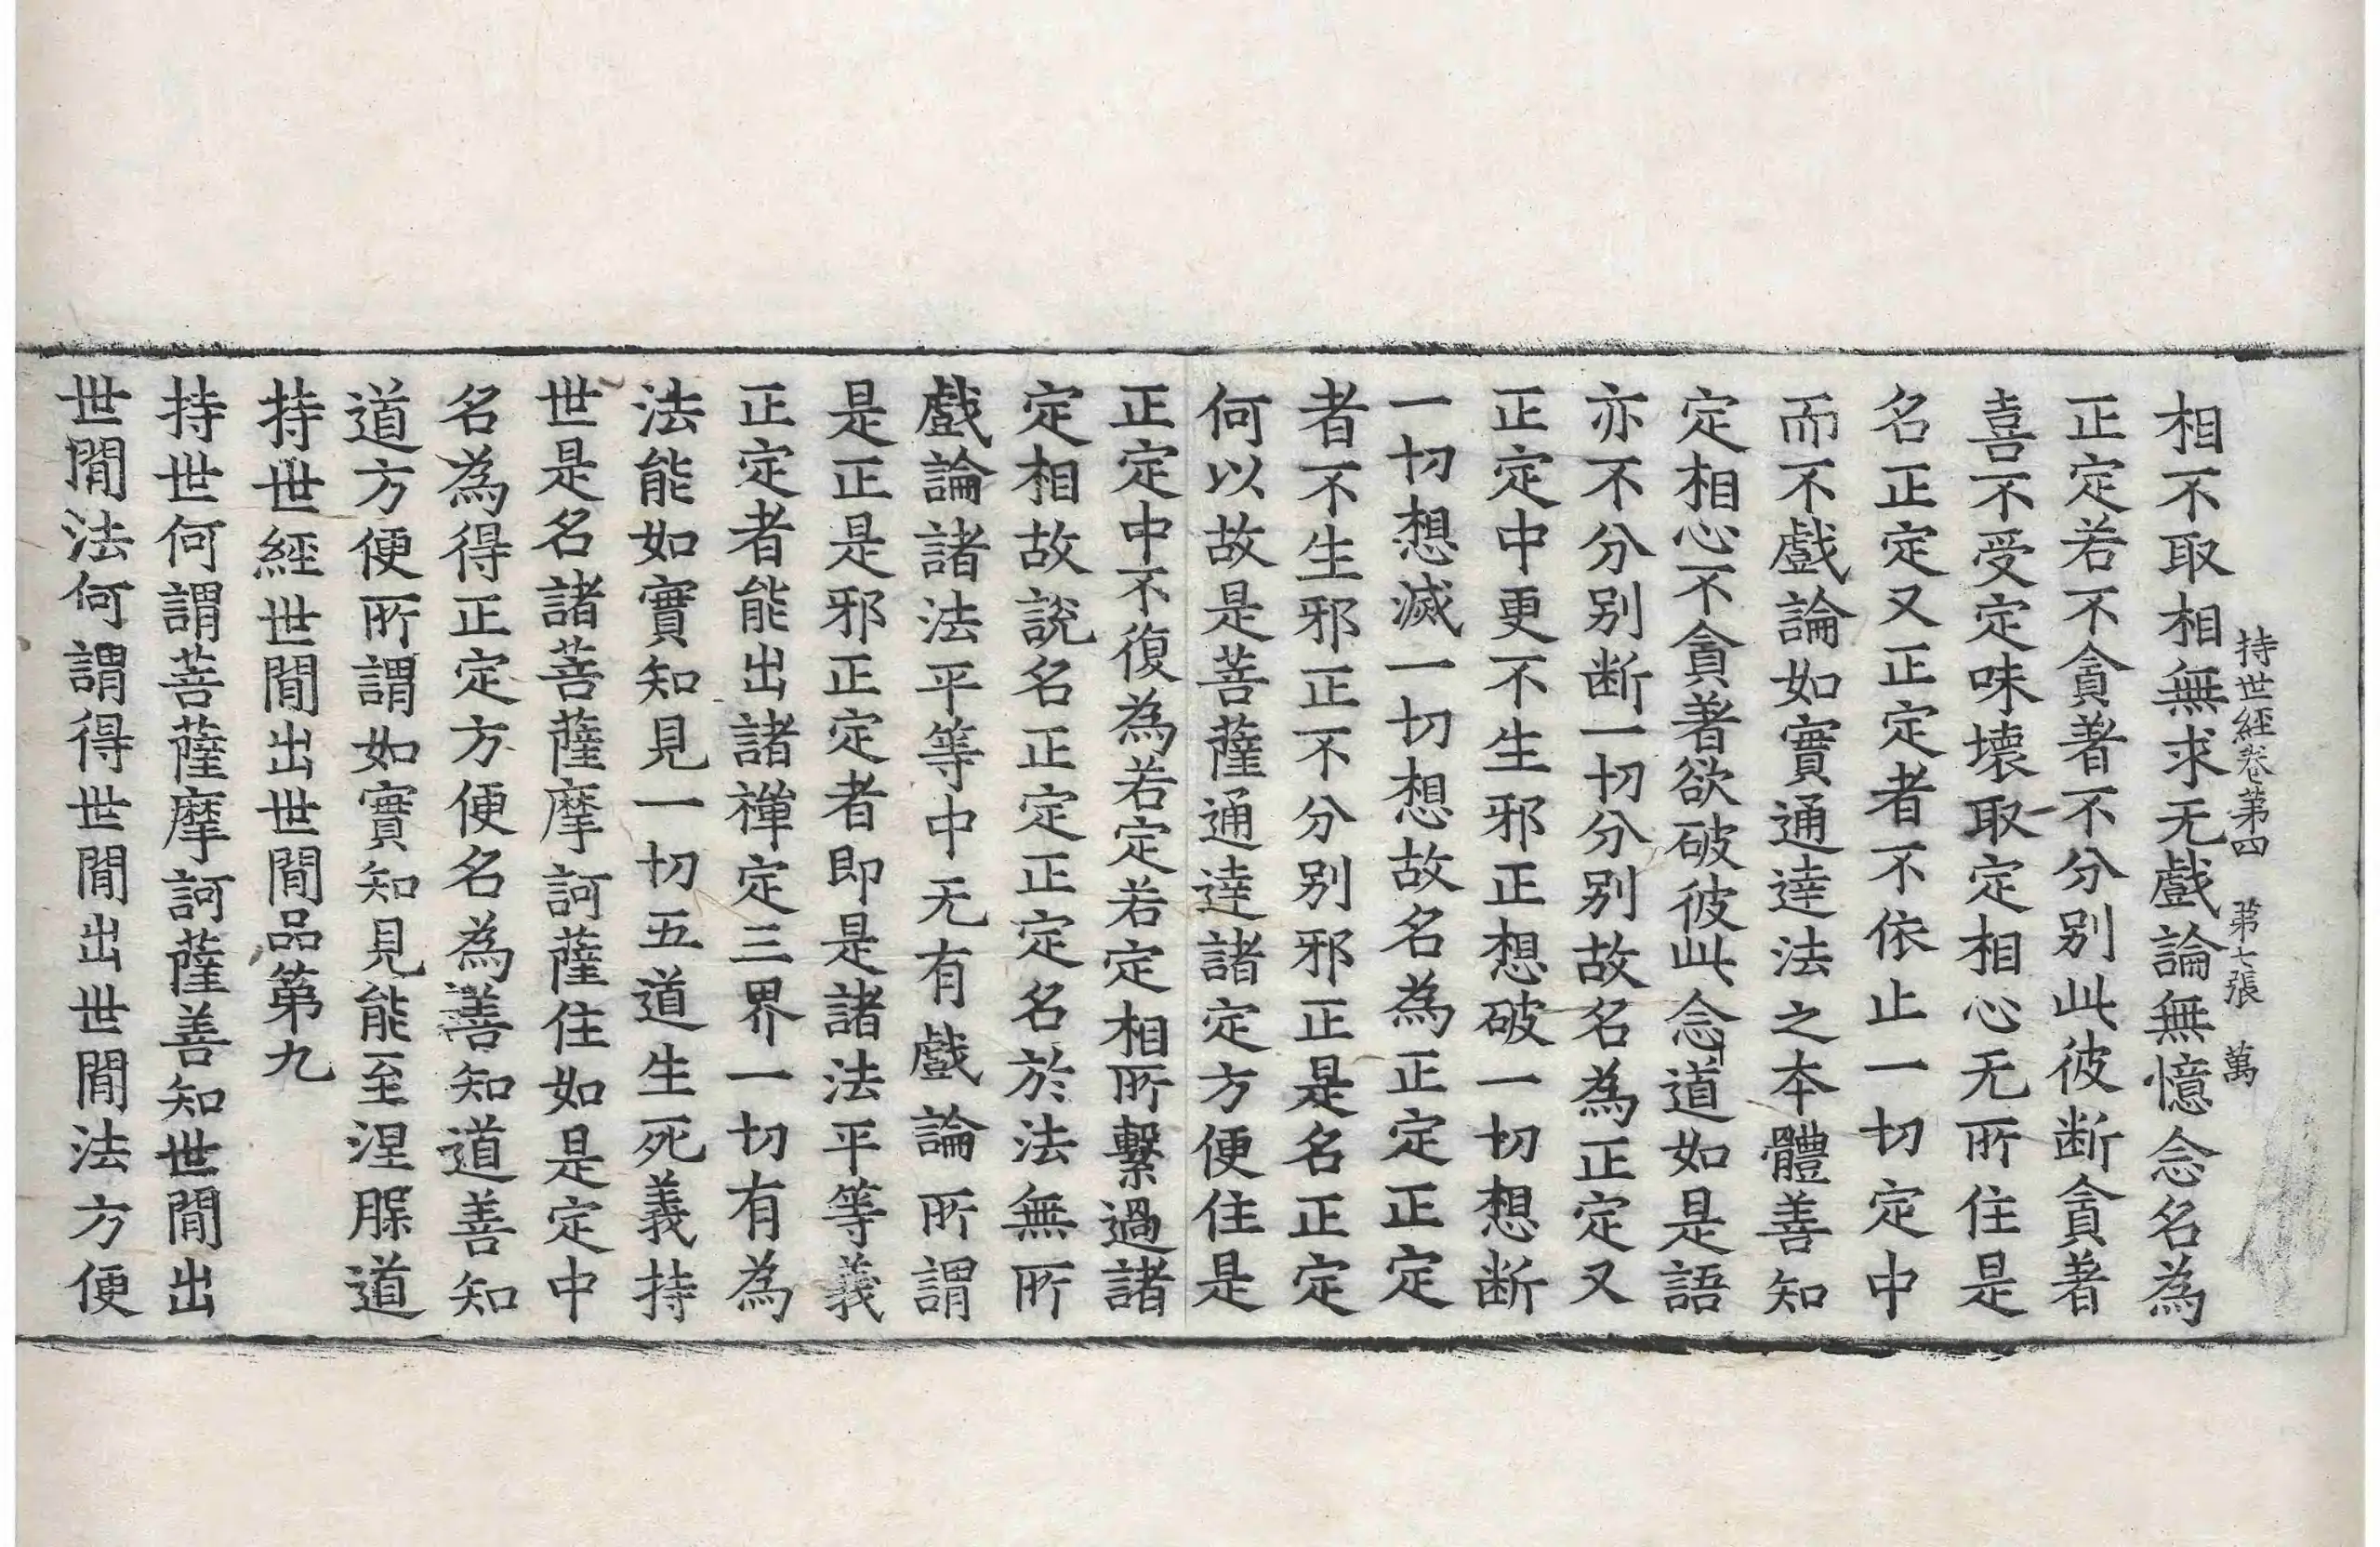 持世經卷第四　第七張　萬
相不取相無求无戲論無憶念名為
正定若不貪著不分別此彼断貪著
喜不受定味壞取定相心无所住是
名正定又正定者不依止一切定中
而不戲論如實通達法之本體善知
定相心不貪著欲破彼此念道如是語
亦不分別断一切分別故名為正定又
正定中更不生邪正想破一切想断
一切想滅一切想故名為正定正定
者不生邪正不分別邪正是名正定
何以故是菩薩通達諸定方便住是
正定中不復為若定若定相所繫過諸
定相故說名正定正定名於法無所
戲論諸法平等中无有戲論所謂
是正是邪正定者即是諸法平等義
正定者能出諸禪定三界一切有為
法能如實知見一切五道生死義持
世是名諸菩薩摩訶薩住如是定中
名為得正定方便名為善知道善知
道方便所謂如實知見能至涅脲道
持世經世閒出世閒品第九
持世何謂菩薩摩訶薩善知世閒出
世閒法何謂得世閒出世閒法方便